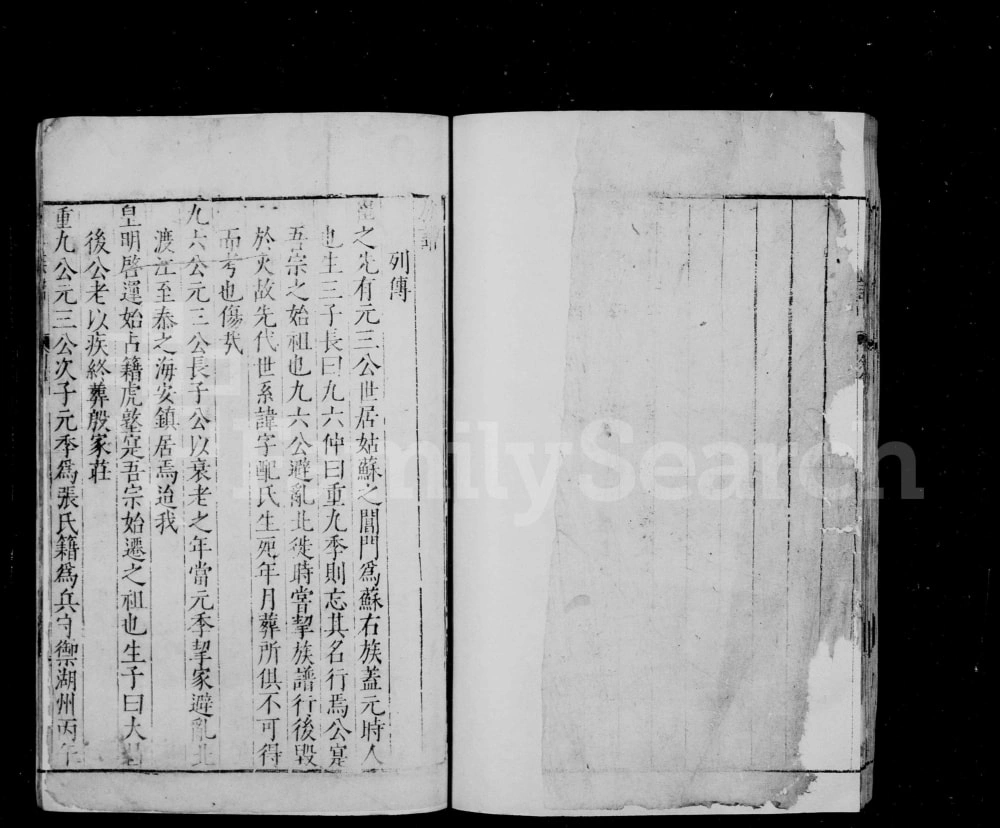 列傳
之先有元三公世居姑蘇之閶門爲蘇右族蓋元時人
也生三子長曰九六仲曰重九季則忘其名行焉公寔
吾宗之始祖也九六公避亂北徙時嘗挈族譜行後毀
於火故先代世系諱字配氏生死年月葬所俱不可得
而考也傷哉
九六公元三公長子公以衰老之年當元季挈家避亂北
渡江至泰之海安鎮居焉迨我
皇明啓運始占籍虎墪寔吾宗始遷之祖也生子曰大
後公老以疾終葬殷家莊
重九公元三公次子元季爲張氏籍爲兵守禦湖州丙午
FamilySearch